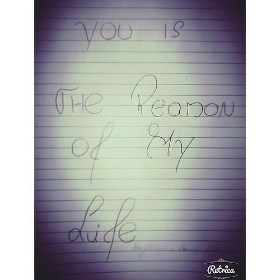 YOU is
The Reason
of My
Life
Retrica